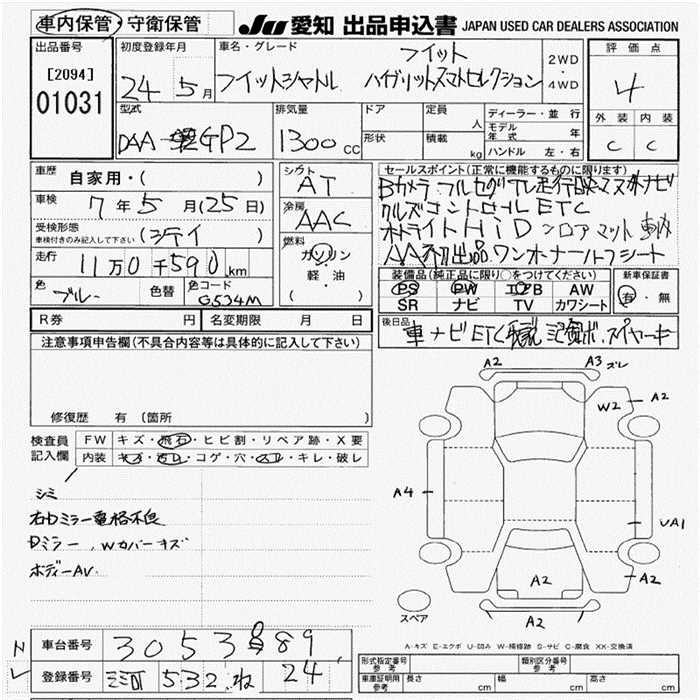 車内保管・守衛保管 JU 愛知 出品申込書 JAPAN USED CAR DEALERS ASSOCIATION
出品番号 初度登録年月 車名・グレード 評価点
[2094] 24年5月 フィットシャトル フィット ハイブリッドスマートセレクション 2WD・4WD 4
01031 外装 内装
型式 排気量 ドア 定員 人 ディーラー・並行 C C
DAA GP2 1300cc 形状 積載 kg モデル年式 年
ハンドル 左・右
車歴 自家用・( ) シフト AT セールスポイント(正常に機能するものに限ります)
車検 7年5月(25日) 冷房 AAC Bカメラ フルセグTV
受検形態 車検付きのみ記入して下さい 燃料 クルズコントロール ETC
走行 11万0千590km ガソリン・軽・油 オートライト HiD フロアマット
ワンオーナー ハーフシート
色 ブルー 色替 色コード G534M 装備品(純正品に限り○をつけてください) 新車保証書
PS PW AW 有・無
SR ナビ TV カワシート
R券 円 名変期限 月 日 後日品
注意事項申告欄(不具合内容等は具体的に記入して下さい) 車 ナビ ETC
A2 A3 ズレ
W2 A2
修復歴 有(箇所
検査員記入欄 FW キズ・飛石・ヒビ割・リペア跡・X要
内装 キズ・汚レ・コゲ・穴・スレ・キレ・破レ
シミ A4
右Dミラー電格不良 UA1
Dミラー、Wカバーキズ
ボディーAV. A2 A2
スペア A2
A-キズ E-エクボ U-凹み W-補修跡 S-サビ C-腐食 XX-交換済
車台番号 3053889
登録番号 532 ね 24
形式指定番号 参考 類別区分番号 参考
車庫証明用 参考 長さ cm 幅 cm 高さ cm